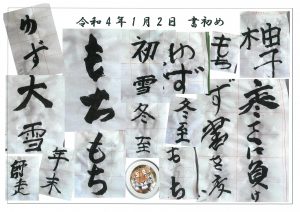 令和4年1月2日 書初め
柚子
寒さに負け
もち
ゆず
冬至
もち
初雪冬至
もちもち
ゆず
大雪
年末
師走